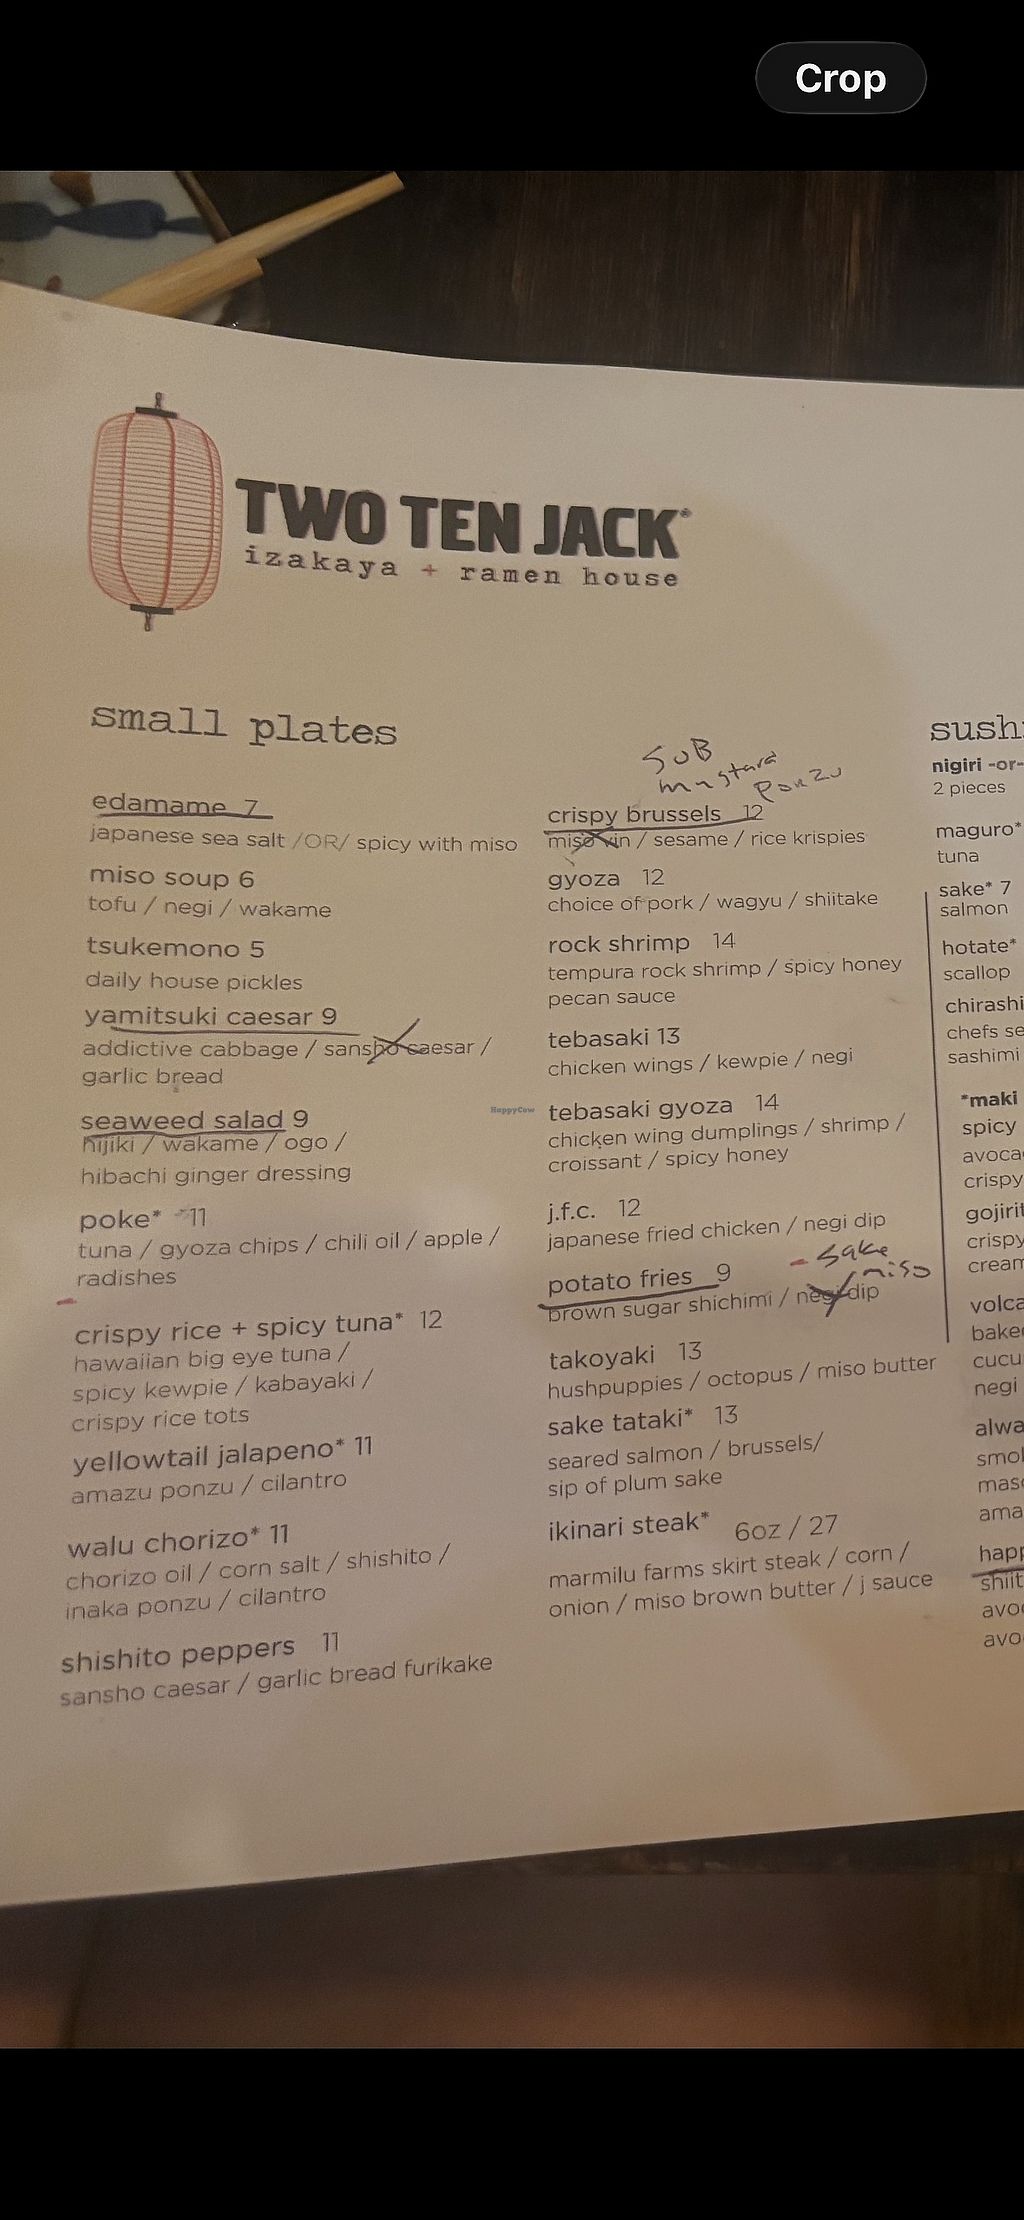 Crop
TWO TEN JACK®
izakaya + ramen house
small plates
edamame 7
japanese sea salt /OR/ spicy with miso
miso soup 6
tofu / negi / wakame
tsukemono 5
daily house pickles
yamitsuki caesar 9
addictive cabbage / sansho caesar /
garlic bread
seaweed salad 9
hijiki / wakame / ogo /
hibachi ginger dressing
poke* 11
tuna / gyoza chips / chili oil / apple /
radishes
crispy rice + spicy tuna* 12
hawaiian big eye tuna /
spicy kewpie / kabayaki /
crispy rice tots
yellowtail jalapeno* 11
amazu ponzu / cilantro
walu chorizo* 11
chorizo oil / corn salt / shishito /
inaka ponzu / cilantro
shishito peppers 11
sansho caesar / garlic bread furikake
SUB
mustard
ponzu
crispy brussels 12
miso vin / sesame / rice krispies
gyoza 12
choice of pork / wagyu / shiitake
rock shrimp 14
tempura rock shrimp / spicy honey
pecan sauce
tebasaki 13
chicken wings / kewpie / negi
HappyCow
tebasaki gyoza 14
chicken wing dumplings / shrimp /
croissant / spicy honey
j.f.c. 12
japanese fried chicken / negi dip
- sake
miso
potato fries 9
brown sugar shichimi / negi dip
takoyaki 13
hushpuppies / octopus / miso butter
sake tataki* 13
seared salmon / brussels/
sip of plum sake
ikinari steak* 6oz / 27
marmilu farms skirt steak / corn /
onion / miso brown butter / j sauce
sushi
nigiri -or-
2 pieces
maguro*
tuna
sake* 7
salmon
hotate*
scallop
chirashi
chefs se
sashimi
*maki
spicy
avoca
crispy
gojirit
crispy
cream
volca
baked
cucu
negi
alwa
smok
masa
ama
happ
shiit
avoc
avoc